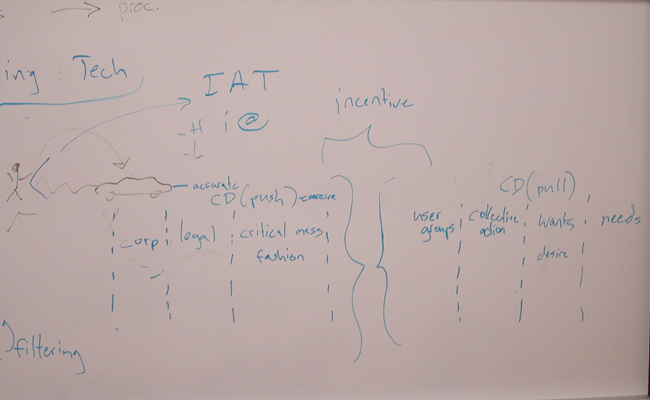 proc.
ing Tech
IAT
incentive
H i @
L
accurate
CD (push)
CD (pull)
corp
legal
critical mess
fashion
user groups
collective action
wants
needs
desire
filtering